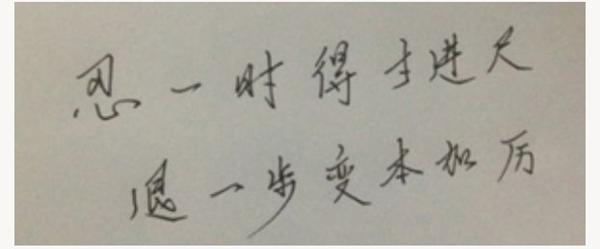 忍一时得寸进尺
退一步变本加厉